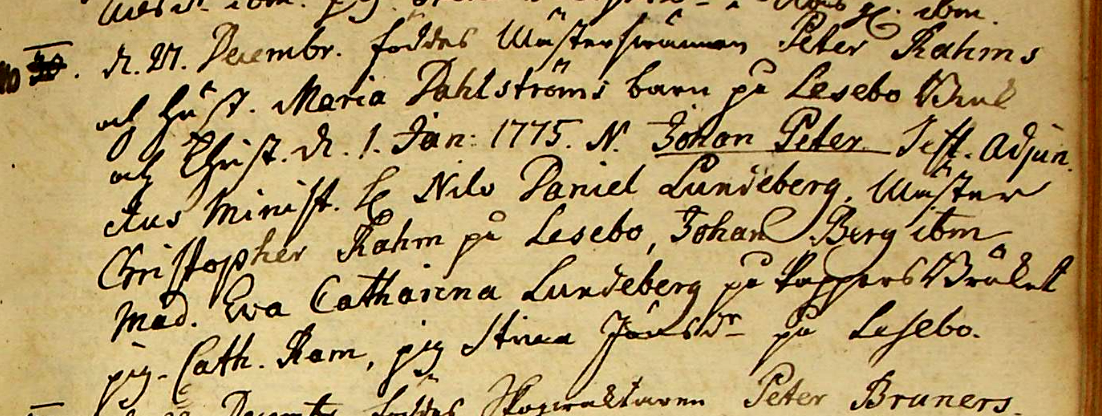 ibm.
d. 27. Decembr. föddes Mästersvännen Peter Rahms
och Hust. Maria Dahlströms barn på Lesebo Bruk
och Christ. d. 1. Jan: 1775. N. Johan Peter Test. Adjun.
ctus Minist. H Nils Daniel Lundeberg, Mäster
Christopher Rahm på Lesebo, Johan Berg ibm
Mad. Ewa Catharina Lundeberg på PappersBruket
pig. Cath. Ram, pig Stina Jönsdr på Lesebo.
Decembr föddes Peter Bruners